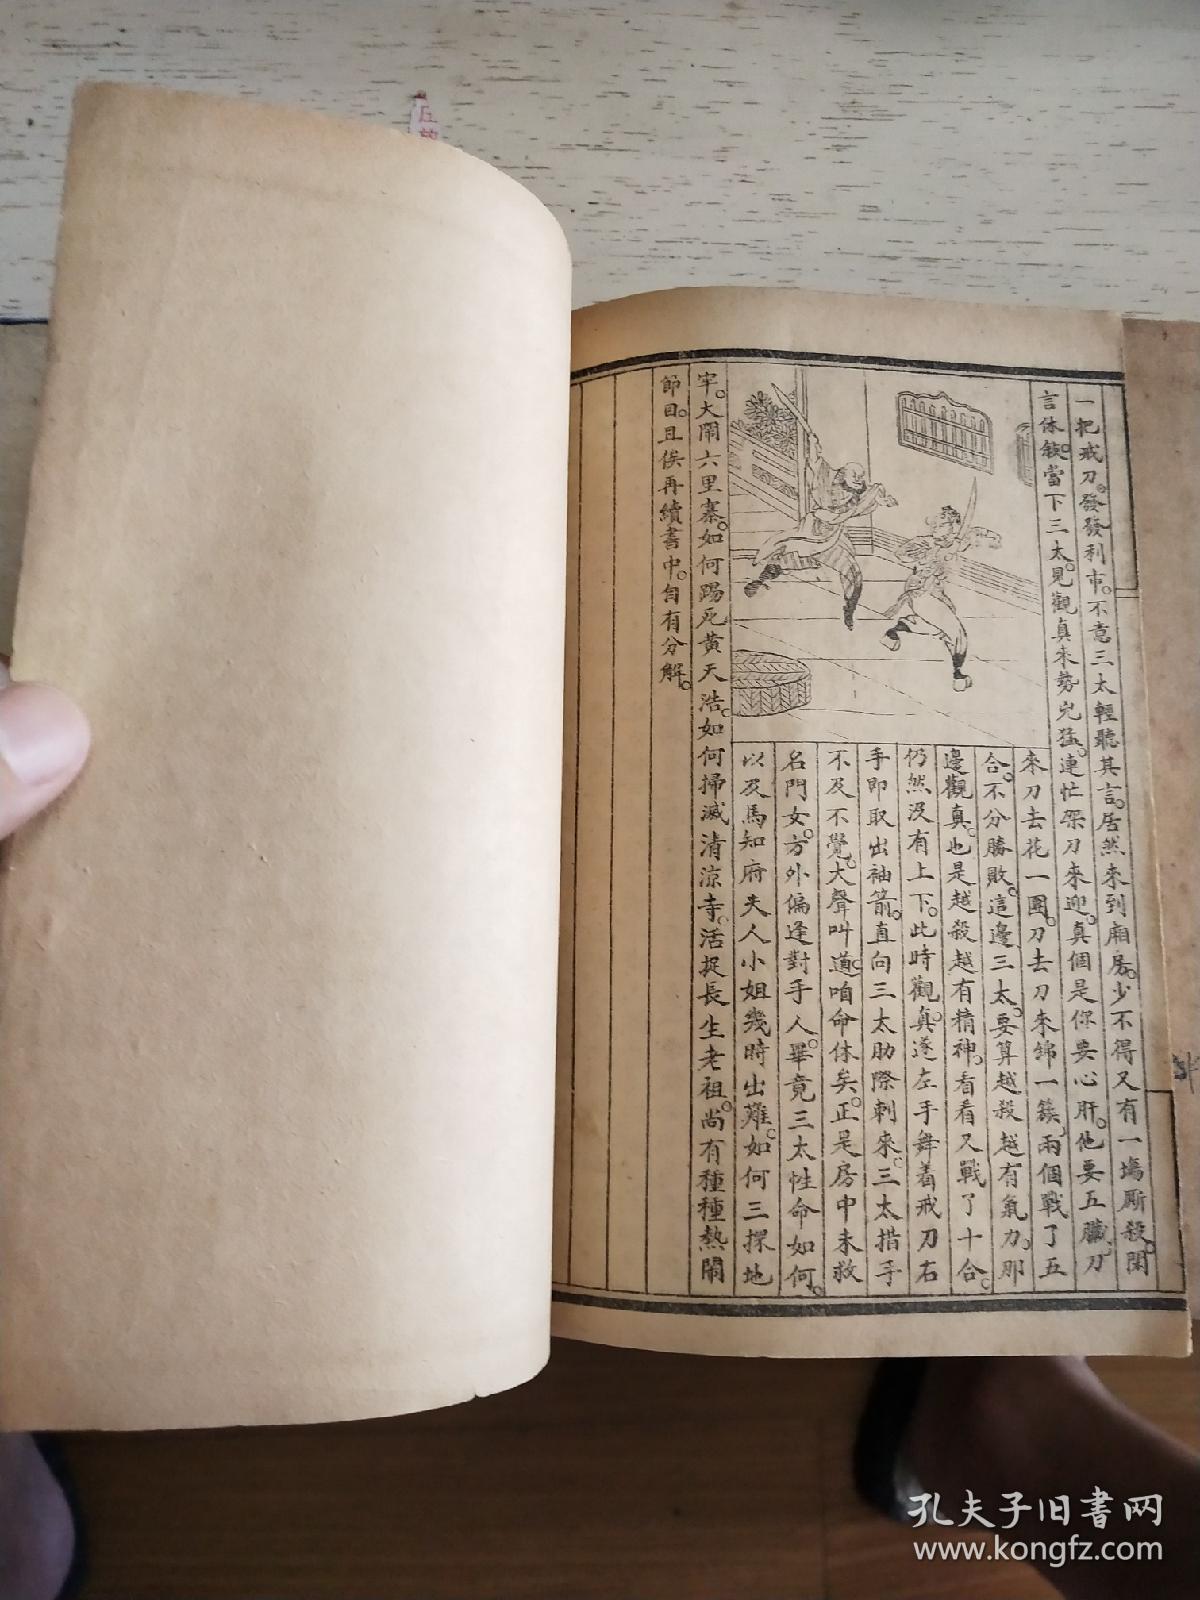 一把戒刀。發發利市。不意三太輕聽其言。居然來到廂房。少不得又有一塲厮殺。閑
言休敘。當下三太。見觀真來勢兇猛。連忙架刀來迎。真個是你要心肝。他要五臟。刀
來刀去花一團。刀去刀來綿一簇。兩個戰了五
合。不分勝敗。這邊三太。要算越殺越有氣力。那
邊觀真。也是越殺越有精神。看看又戰了十合。
仍然没有上下。此時觀真。遂左手舞着戒刀右
手即取出袖箭。直向三太肋際刺來。三太措手
不及不覺。大聲叫道。咱命休矣。正是房中未救
名門女。方外偏逢對手人。畢竟三太性命如何。
以及馬知府夫人小姐幾時出難。如何三探地
牢。大鬧六里寨。如何踢死黃天浩。如何掃滅清涼寺。活捉長生老祖。尚有種種熱鬧
節目。且俟再續書中。自有分解。
孔夫子旧書网
www.kongfz.com